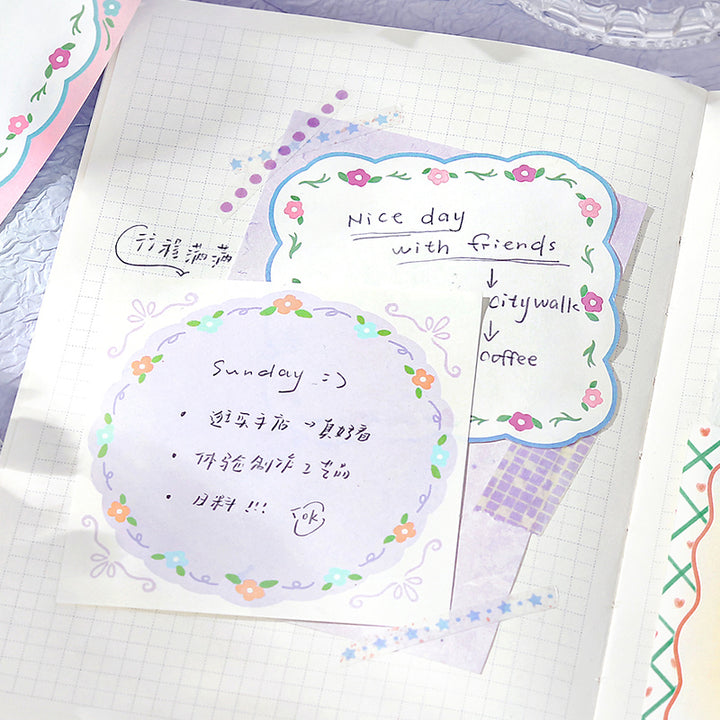 行程满满
Nice day
with friends
↓
citywalk
↓
coffee
Sunday :)
• 逛买手店 → 真好看
• 体验制作工艺品
• 日料!!! ok